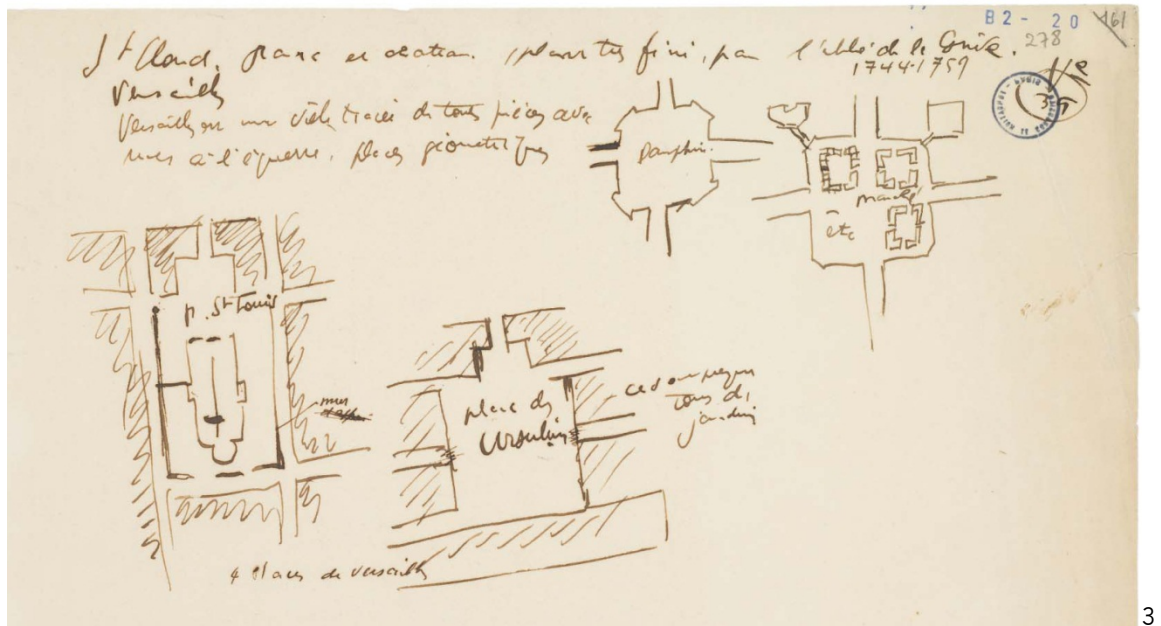 B2-20 461
278
St Cloud. plans et
plans très fini, par l'abbé de la Grive.
1744-1759
Versailles
Versailles est une ville tracée de toutes pièces avec
rues à l'équerre, places géométriques
Dauphin.
marché
etc
p. St Louis
mur
place des
Ursulines
ces
jardin
4 places de Versailles
3